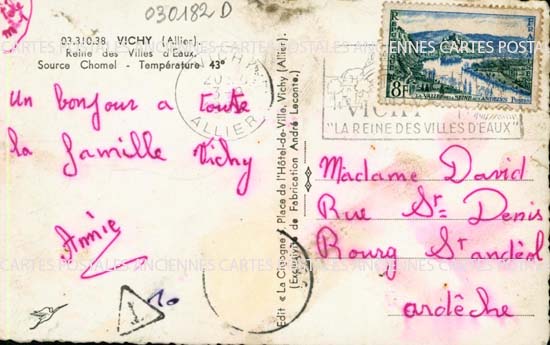 030182 D
03.310.38 VICHY (Allier).
Reine des Villes d'Eaux.
Source Chomel - Température 43°
un bonjour a toute
la famille Vichy
Annie
T
ALLIER
Edit « La Cigogne », Place de l'Hôtel-de-Ville, Vichy (Allier).
(Exclusivité de Fabrication André Leconte.)
8F
VICHY
"LA REINE DES VILLES D'EAUX"
Madame David
Rue St Denis
Bourg St andéol
ardèche
CARTES POSTALES ANCIENNES CARTES POSTALES